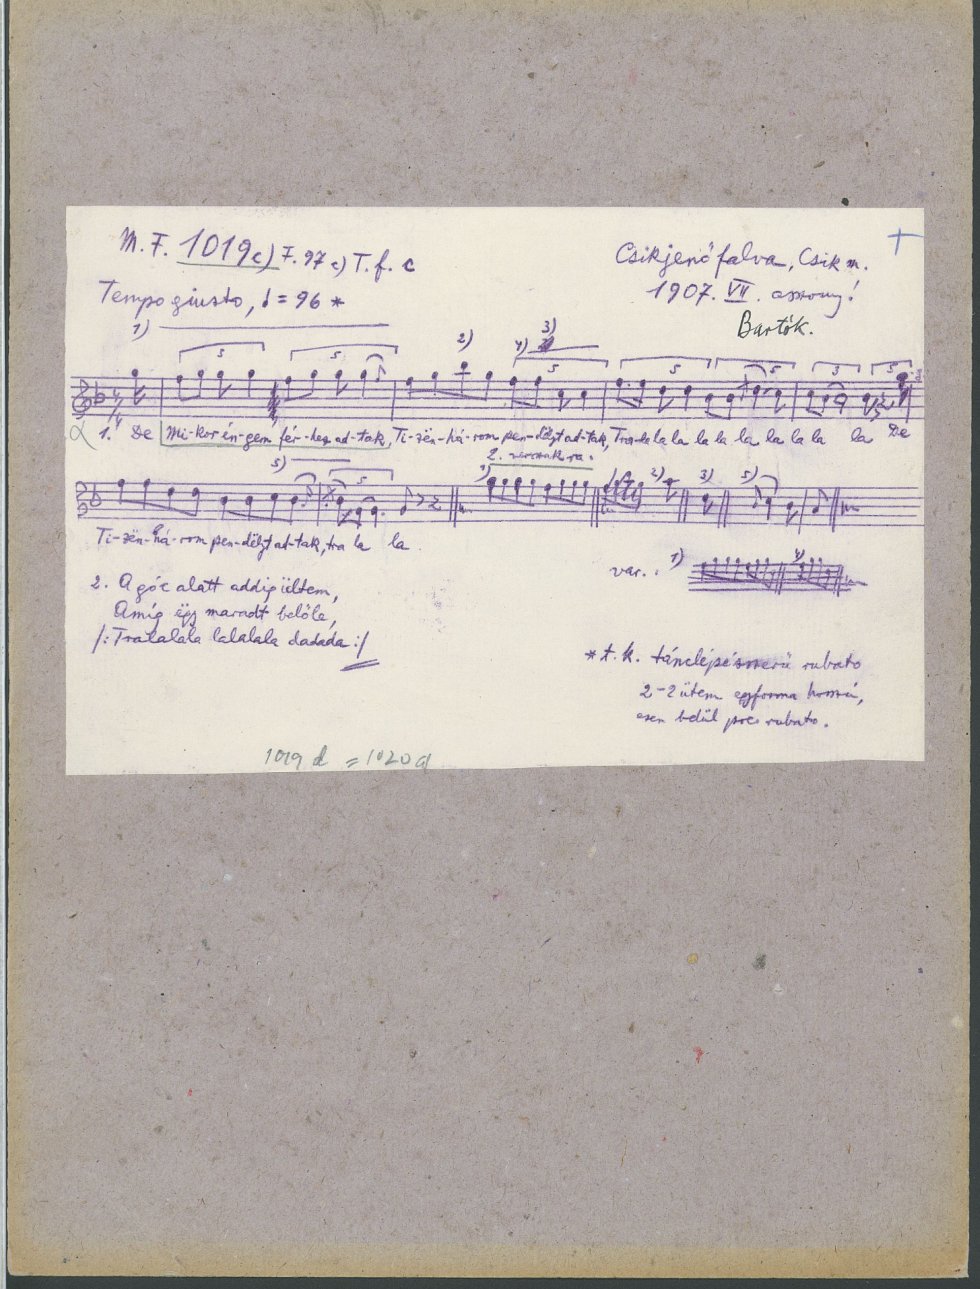 M. F. 1019c) F. 97 c) T. f. c
Csikjenőfalva, Csik m.
1907. VII. asszony!
Bartók.
Tempo giusto, ♩ = 96 *
1) 2) 3) 4)
5 5 5 5 5 3 3
1. De Mi-kor én-gem fér-hez ad-tak, Ti-zën-há-rom pen-délyt ad-tak, Tra-la la la la la la la la la la De
2. versszakra.
5) 1) 2) 3) 5)
Ti-zën-há-rom pen-délyt ad-tak, tra la la.
var.: 1) 4)
2. A góc alatt addig ültem,
Amíg ëgy maradt belőle,
/: Tralalala lalalala dadada :/
* t. k. tánclépésszerű rubato
2-2 ütem egyforma hosszú,
ezen belül rubato.
1019 d = 1020 a)